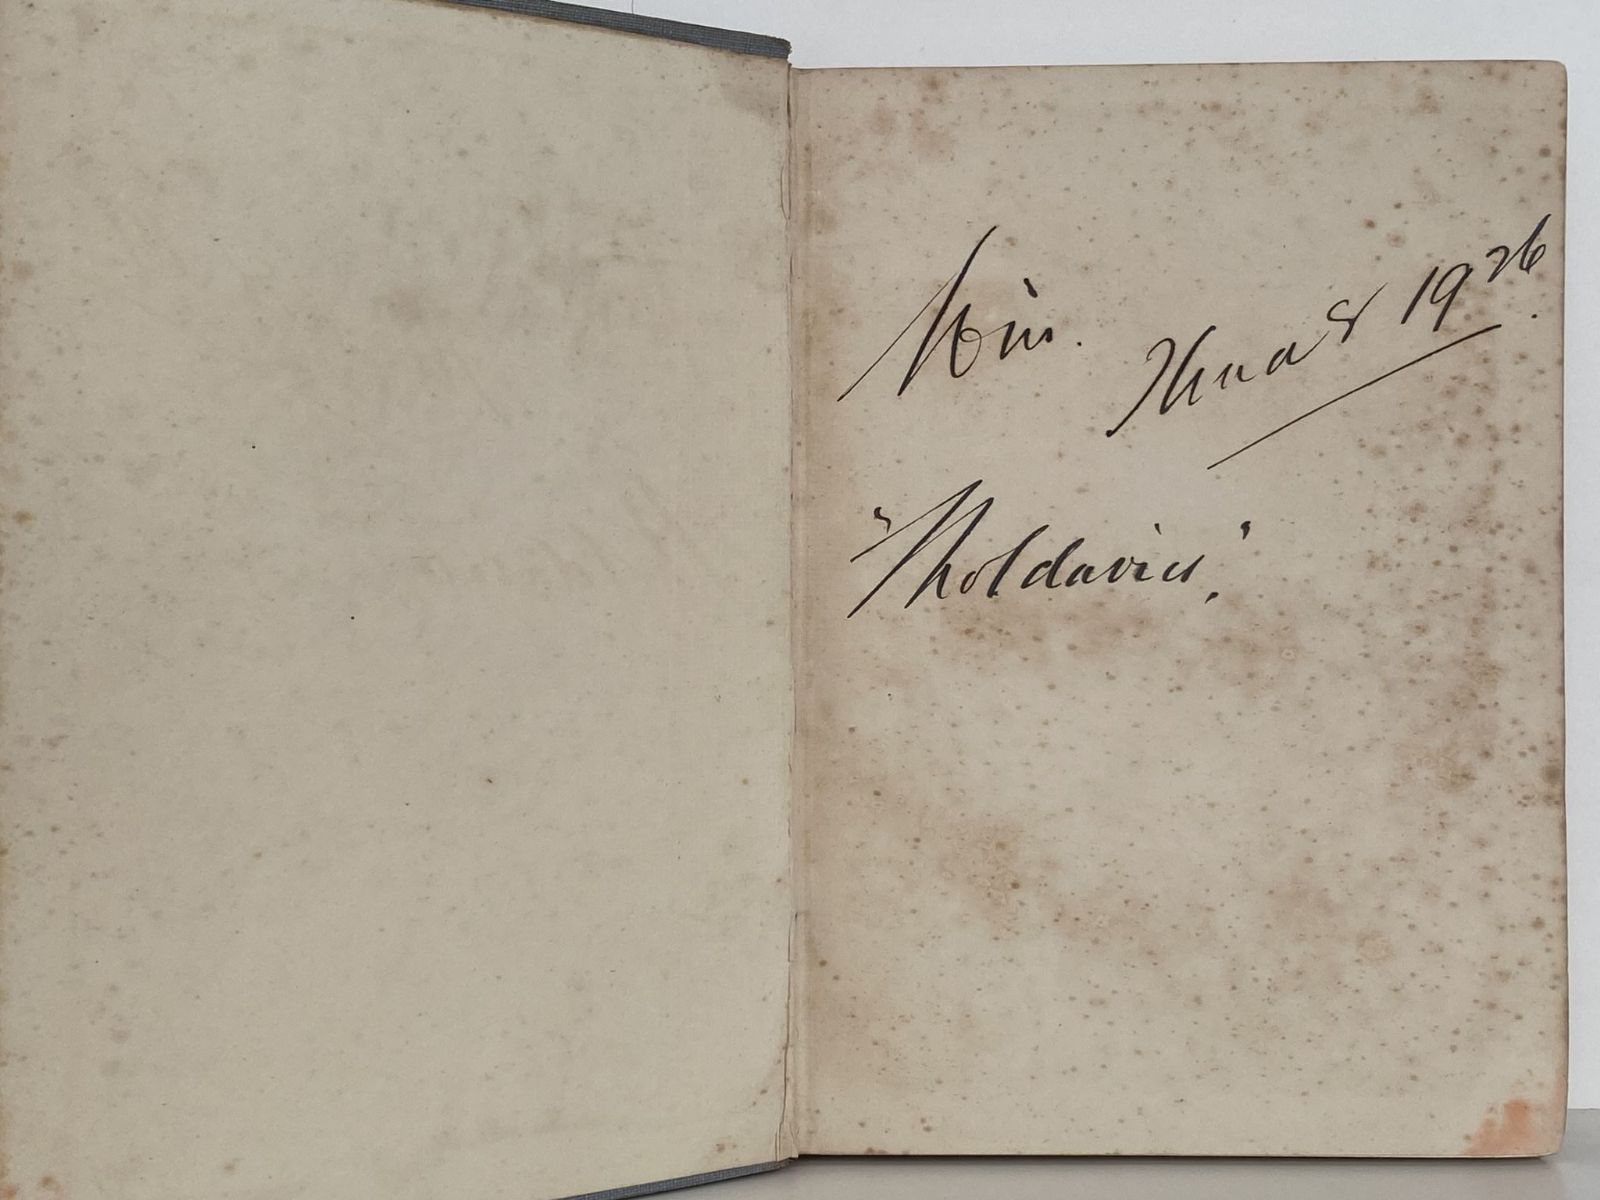 Xmas 1926.
"Moldavia."